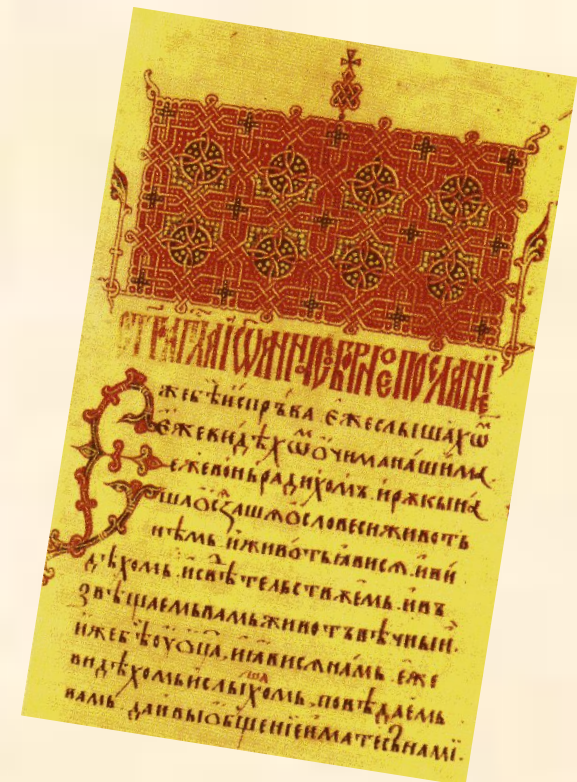 ст҃г апⷭ҇ла і҆ѡанна събѡрное посланїе
Еже бѣ и҆спръва еже слышахѡⷨ
е҆же видѣхѡⷨ ѻ҆чима нашима
еже вонь радихомъ. и рѫкы на
шѧ ѻ҆сѧзашѧ ѻ҆ словеси животь
нѣмь. и҆ живо́ть ꙗ҆висѧ. и҆ ви
дѣхомь. и свѣтельствꙋемь. и въ
звѣщаемь вамь животъ вѣчныи.
иже бѣ ѹ҆ ѻ҆ц҃а. и ꙗвисѧ намь. еже
видѣхомь и слышахомь. повѣдаемь
вамь. да и вы ѻ҆бщенїе имате съ нами.